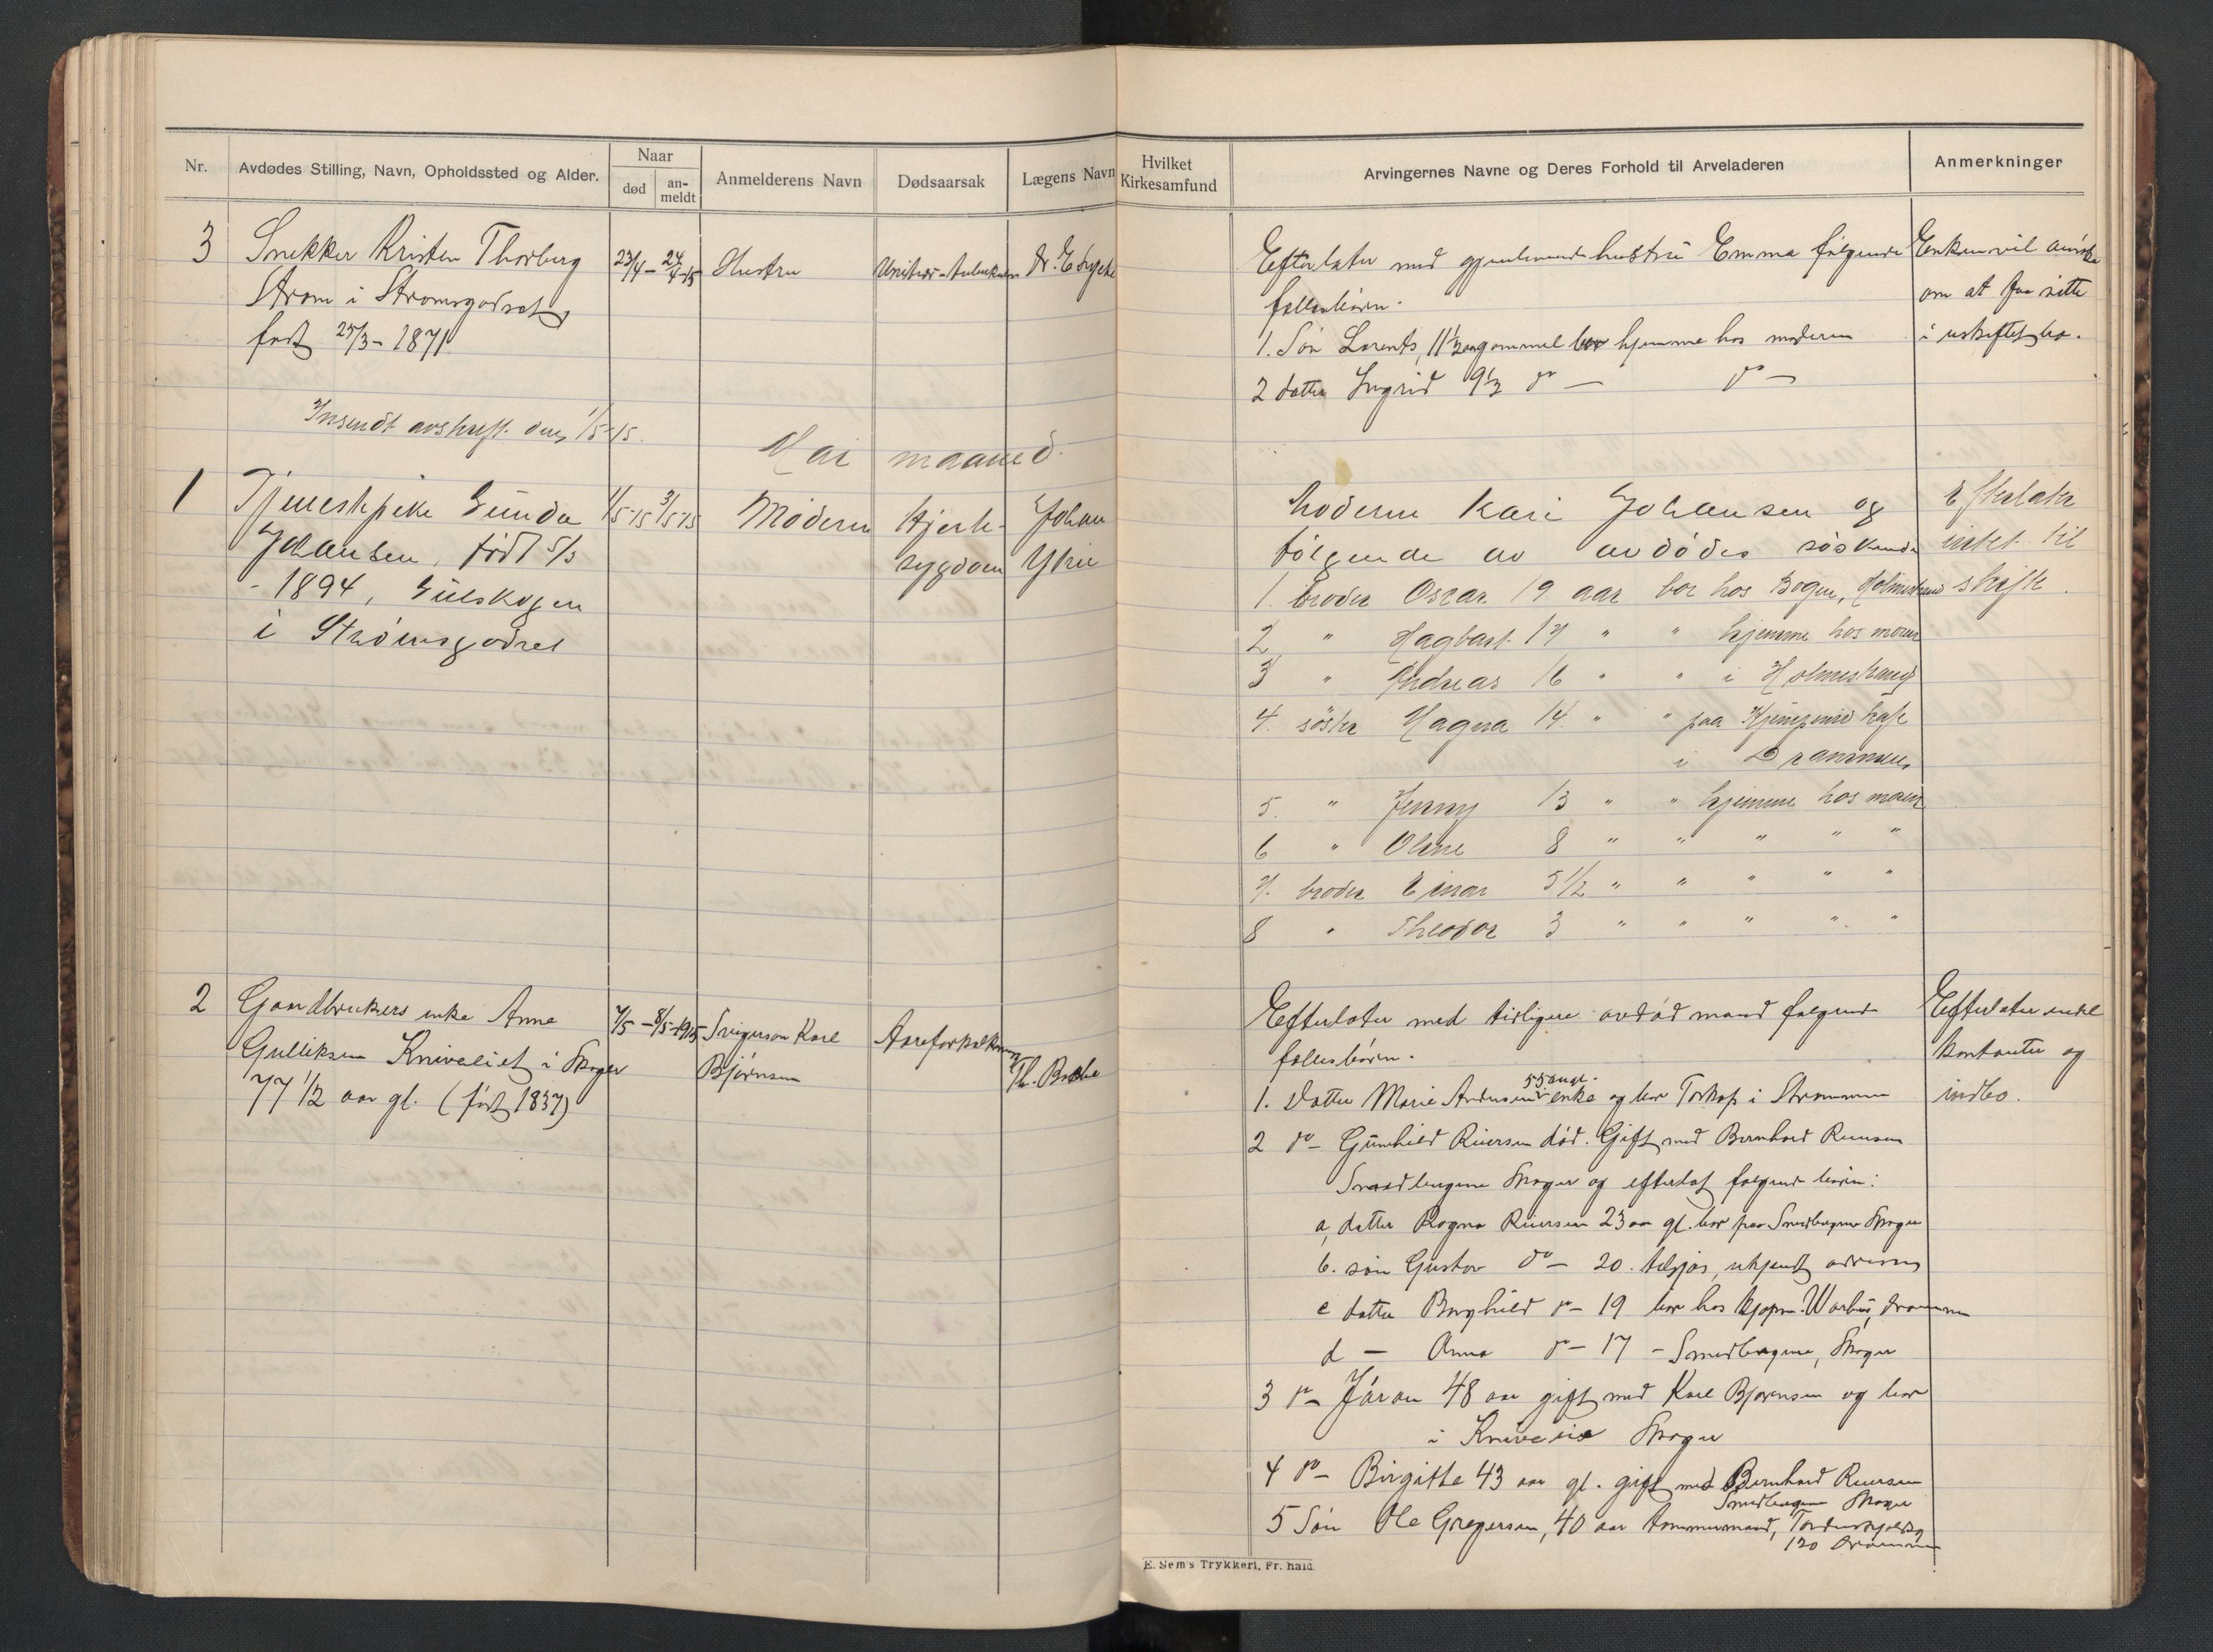 Nr.
Avdødes Stilling, Navn, Opholdssted og Alder.
Naar
død
an-
meldt
Anmelderens Navn
Dødsaarsak
Lægens Navn
Hvilket
Kirkesamfund
Arvingernes Navne og Deres Forhold til Arveladeren
Anmerkninger
3
Snekker Kristen Thorberg
Strøm i Strømsgodset,
født 25/3-1871
23/4 - 24/4-15
Hustru
Dr. E
Efterlater med gjenlevende hustru Emma følgende
fellesbørn.
1. Søn Lorents, 11 1/2 aar gammel bor hjemme hos moderen
2 datter Ingrid 9 1/2 do — do —
Enken vil ansøke
om at faa sitte
i uskiftet bo.
Insendt avskrift den 1/5-15.
Mai maaned.
1
Tjenestepike Gunda
Johansen, født 5/3
- 1894, Gulskogen
i Strømsgodset
1/5-15 3/5-15
Moderen
Hjerte-
sygdom
Johan
Moderen Kari Johansen og
følgende av avdødes søskende
1. broder Oscar 19 aar bor hos Bogen, Holmestrand
2 " Hagbart 17 " " hjemme hos moren
3 " Andreas 16 " " i Holmestrand
4. søster Magna 14 " " paa Kjempenes kafe
i Drammen
5. " Jenny 13 " " hjemme hos moren
6 " Oline 8 " " " " "
7. broder Einar 5 1/2 " " " " "
8 " Theodor 3 " " " " "
Efterlater
intet til
skifte.
2
Gaardbrukers enke Anne
Gulliksen Kniveliet i Skoger
77 1/2 aar gl. (født 1837)
7/5 - 8/5-1915
Svigersøn Karl
Bjørnsen
Aareforkalkning
Th. Bache
Efterlater med tidligere avdød mand følgende
fellesbørn.
1. Datter Marie Andersen 55 aar gl. enke og bor Torkop i Strømmen
2 do - Gunhild Riiersen død. Gift med Bernhard Riiersen
Smedbergene Skoger og efterlot følgende børn:
a, datter Ragna Riiersen 23 aar gl. bor paa Smedbergene Skoger
b. søn Gustav do — 20. tilsjøs, ukjendt adresse
c datter Borghild do - 19 bor hos kjøpm. Drammen
d — Anna do - 17 - Smedbergene, Skoger
3 do - Jøran 48 aar gift med Karl Bjørnsen og bor
i Knivelia Skoger
4 do - Birgitte 43 aar gl. gift med Bernhard Riiersen
Smedbergene Skoger
5 Søn Ole Gregersen, 40 aar tømmermand, Tordenskjoldsg
120 Drammen
Efterlater endel
kontanter og
indbo.
E. Sem's Trykkeri, Fr.hald.